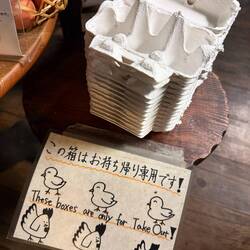 この箱はお持ち帰り専用です!
These boxes are only for Take Out!